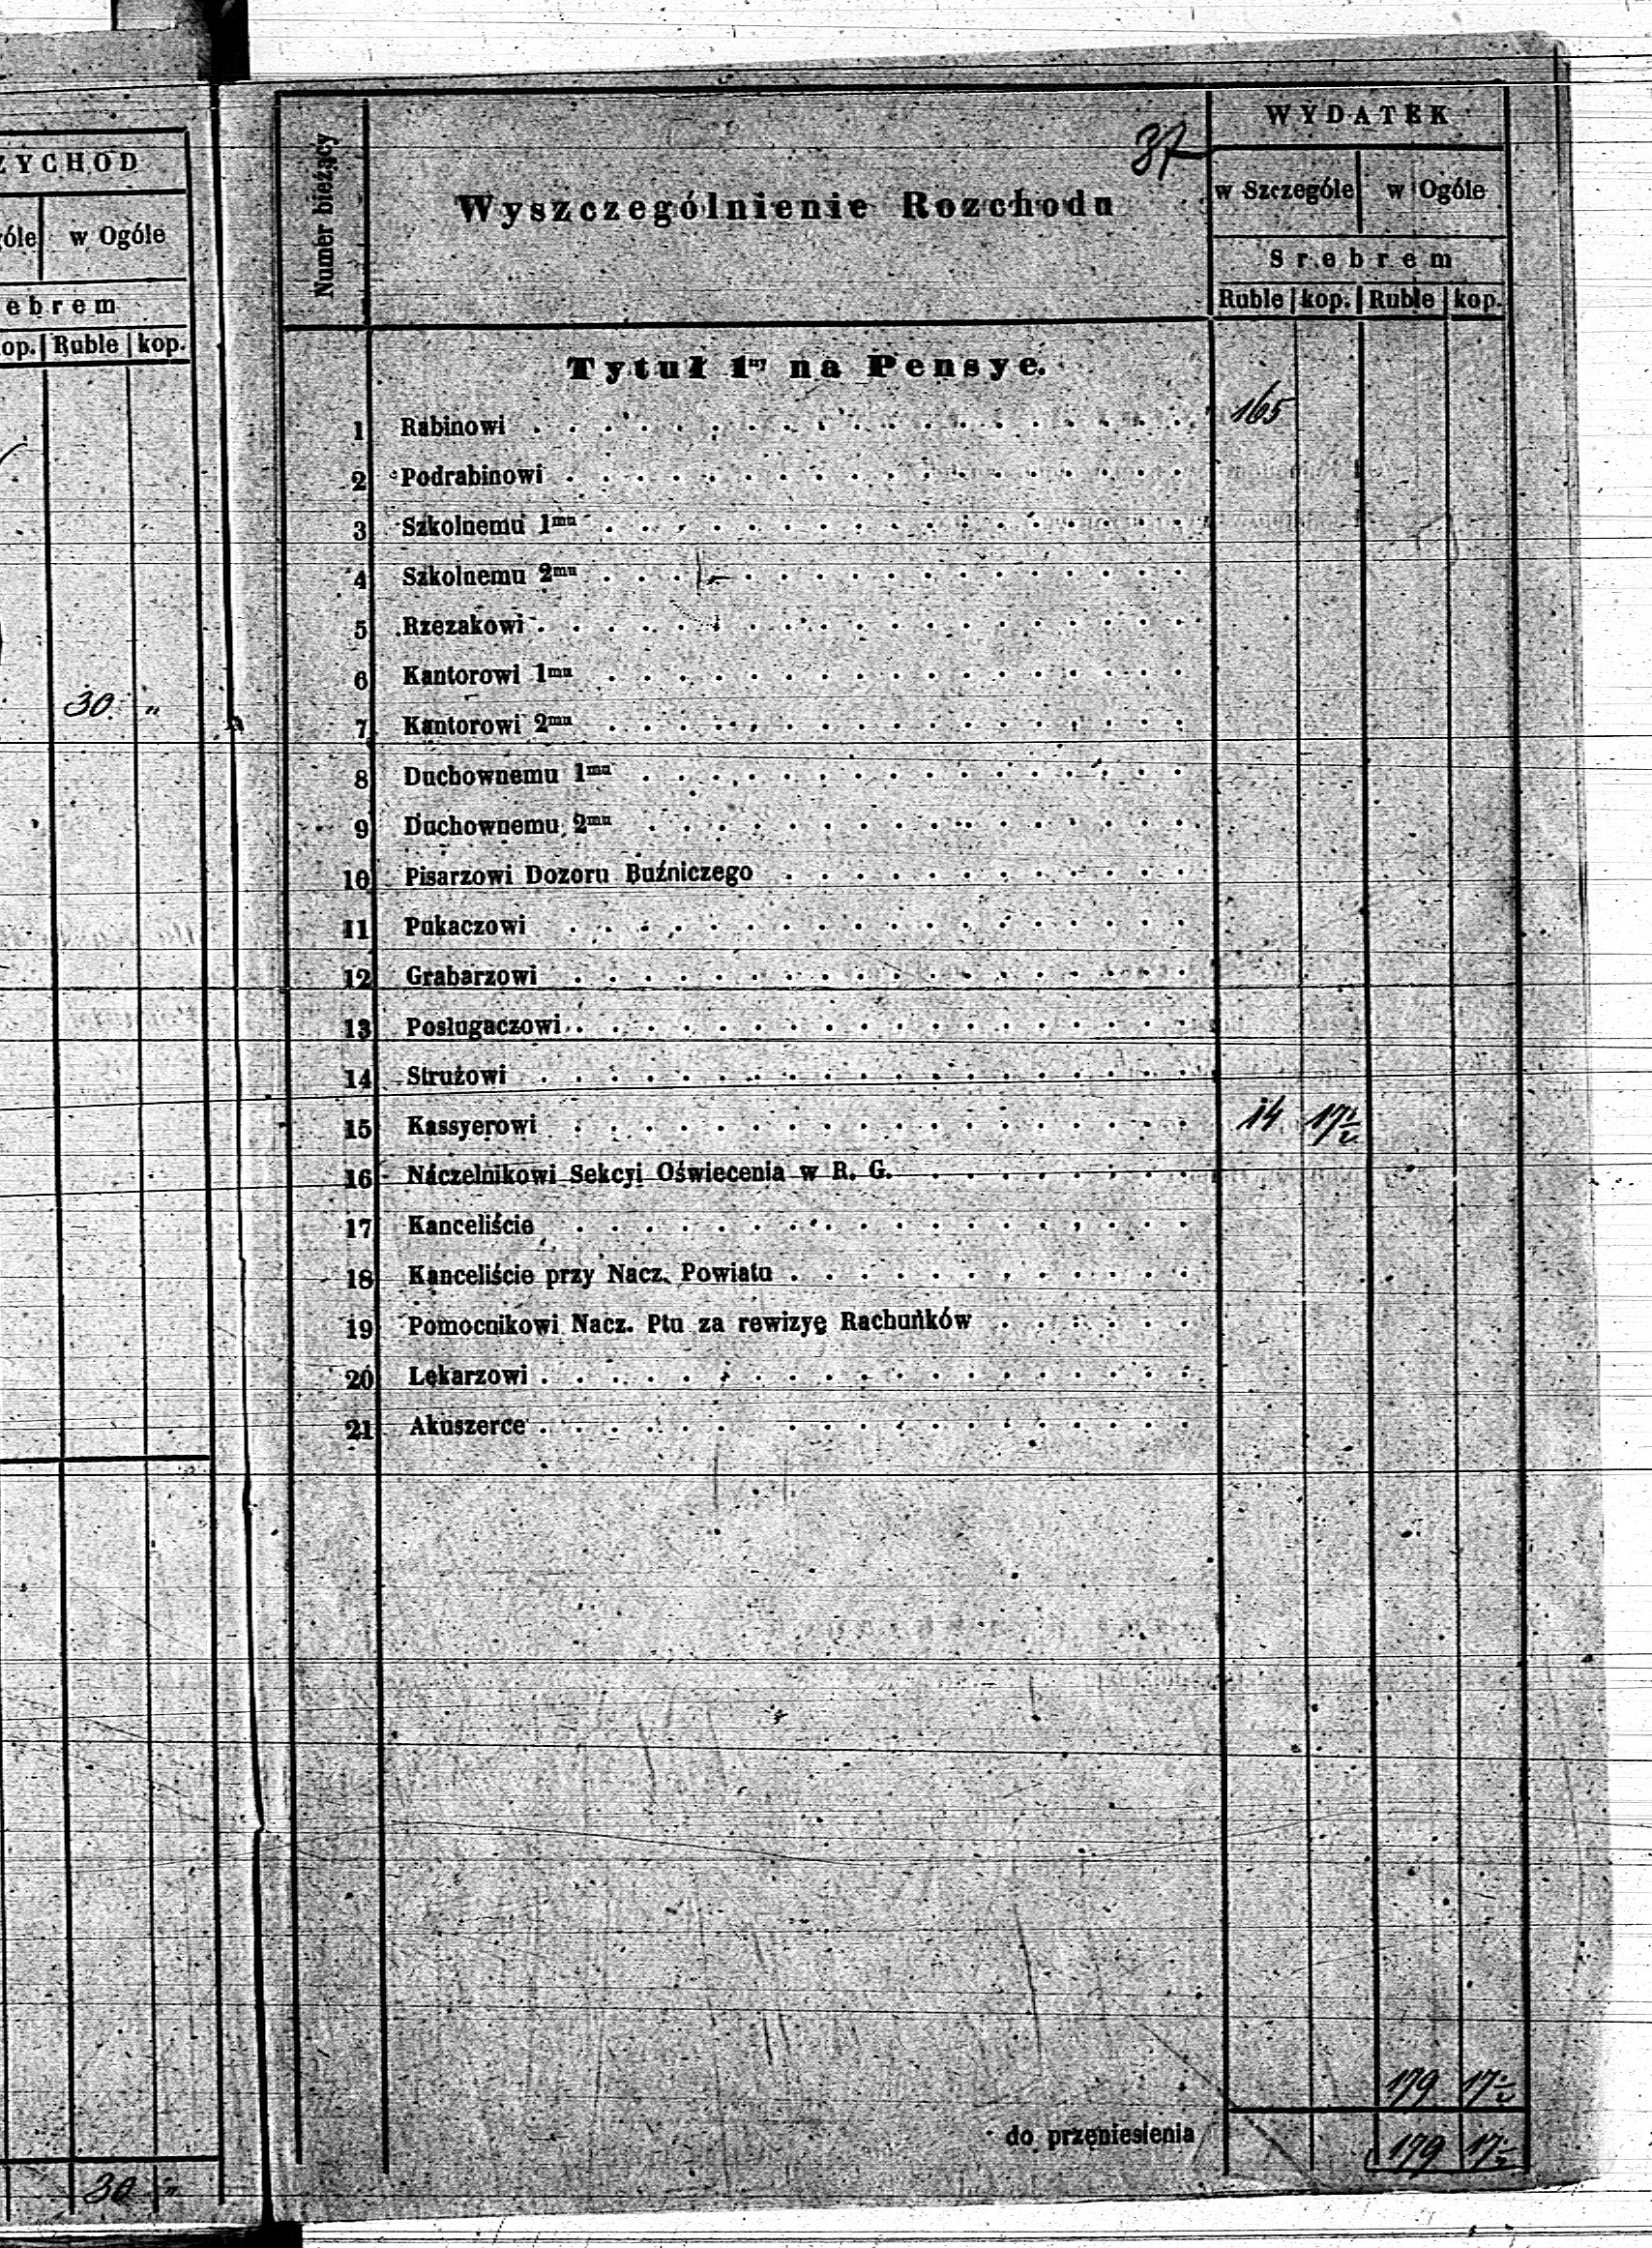 ZYCHOD
góle w Ogóle
ebrem
op. Ruble kop.
30 "
30 "
37
Numer bieżący
Wyszczególnienie Rozchodu
WYDATEK
w Szczególe w Ogóle
Srebrem
Ruble kop. Ruble kop.
Tytuł 1ny na Pensye.
1 Rabinowi . . . 165
2 Podrabinowi . . .
3 Szkolnemu 1mu . . .
4 Szkolnemu 2mu . . .
5 Rzezakowi . . .
6 Kantorowi 1mu . . .
7 Kantorowi 2mu . . .
8 Duchownemu 1mu . . .
9 Duchownemu 2mu . . .
10 Pisarzowi Dozoru Buźniczego . . .
11 Pukaczowi . . .
12 Grabarzowi . . .
13 Posługaczowi . . .
14 Strużowi . . .
15 Kassyerowi . . . 14 17½
16 Naczelnikowi Sekcyi Oświecenia w R. G. . . .
17 Kanceliście . . .
18 Kanceliście przy Nacz. Powiatu . . .
19 Pomocnikowi Nacz. Ptu za rewizyę Rachunków . . .
20 Lekarzowi . . .
21 Akuszerce . . .
179 17½
do przeniesienia 179 17½